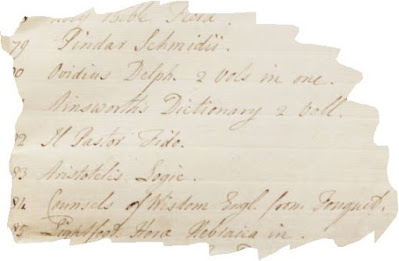 Holy Bible Fiora.
79 Pindar Schmidii.
80 Ovidius Delph. 2 Vols in one.
Ainsworth's Dictionary 2 Voll.
82 Il Pastor Fido.
83 Aristotelis Logic.
84 Counsels of Wisdom Engl. from Fouquet.
85 Lightfoot Horæ Hebraica in